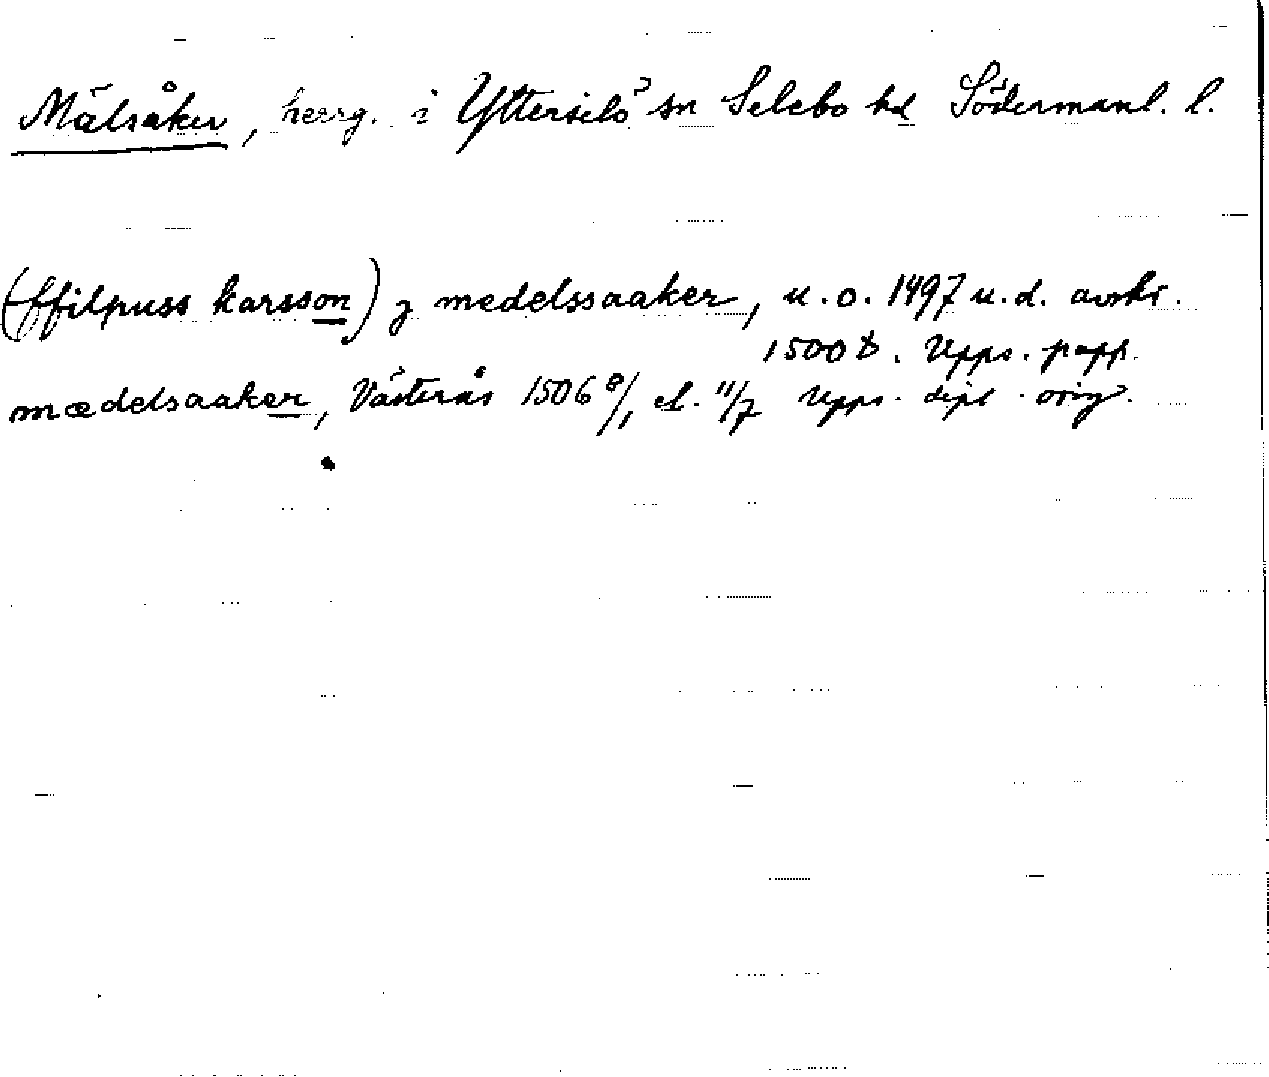 Mälsåker, herrg. i Ytterselö sn Selebo hd Södermanl. l.
(ffilpuss karsson) j medelssaaker, u.o. 1497 u.d. avskr.
1500 t. Upps. papp.
mædelsaaker, Västerås 1506 8/1 el. 11/7 Upps. dipl. orig.